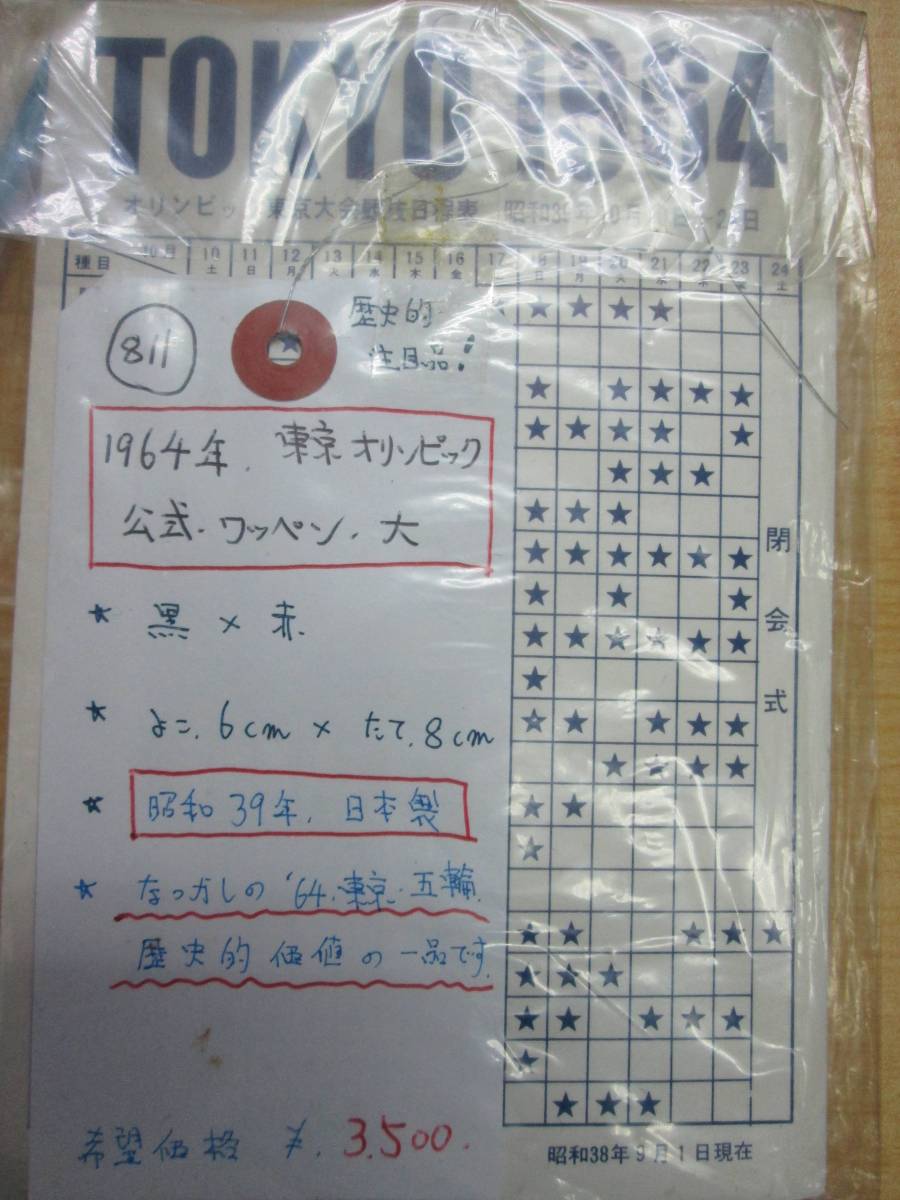 TOKYO 1964
オリンピック東京大会競技日程表 昭和39年10月10日~24日
種目 10月 10 11 12 13 14 15 16 17 18 19 20 21 22 23 24
土 日 月 火 水 木 金 日 月 火 水 木 金 土
811
歴史的
注目品!
1964年.東京オリンピック
公式.ワッペン.大
★ 黒×赤.
★ よこ.6cm×たて.8cm
★ 昭和39年.日本製
★ なつかしの'64.東京.五輪.
歴史的価値の一品です.
希望価格 ¥.3.500.
閉会式
昭和38年9月1日現在